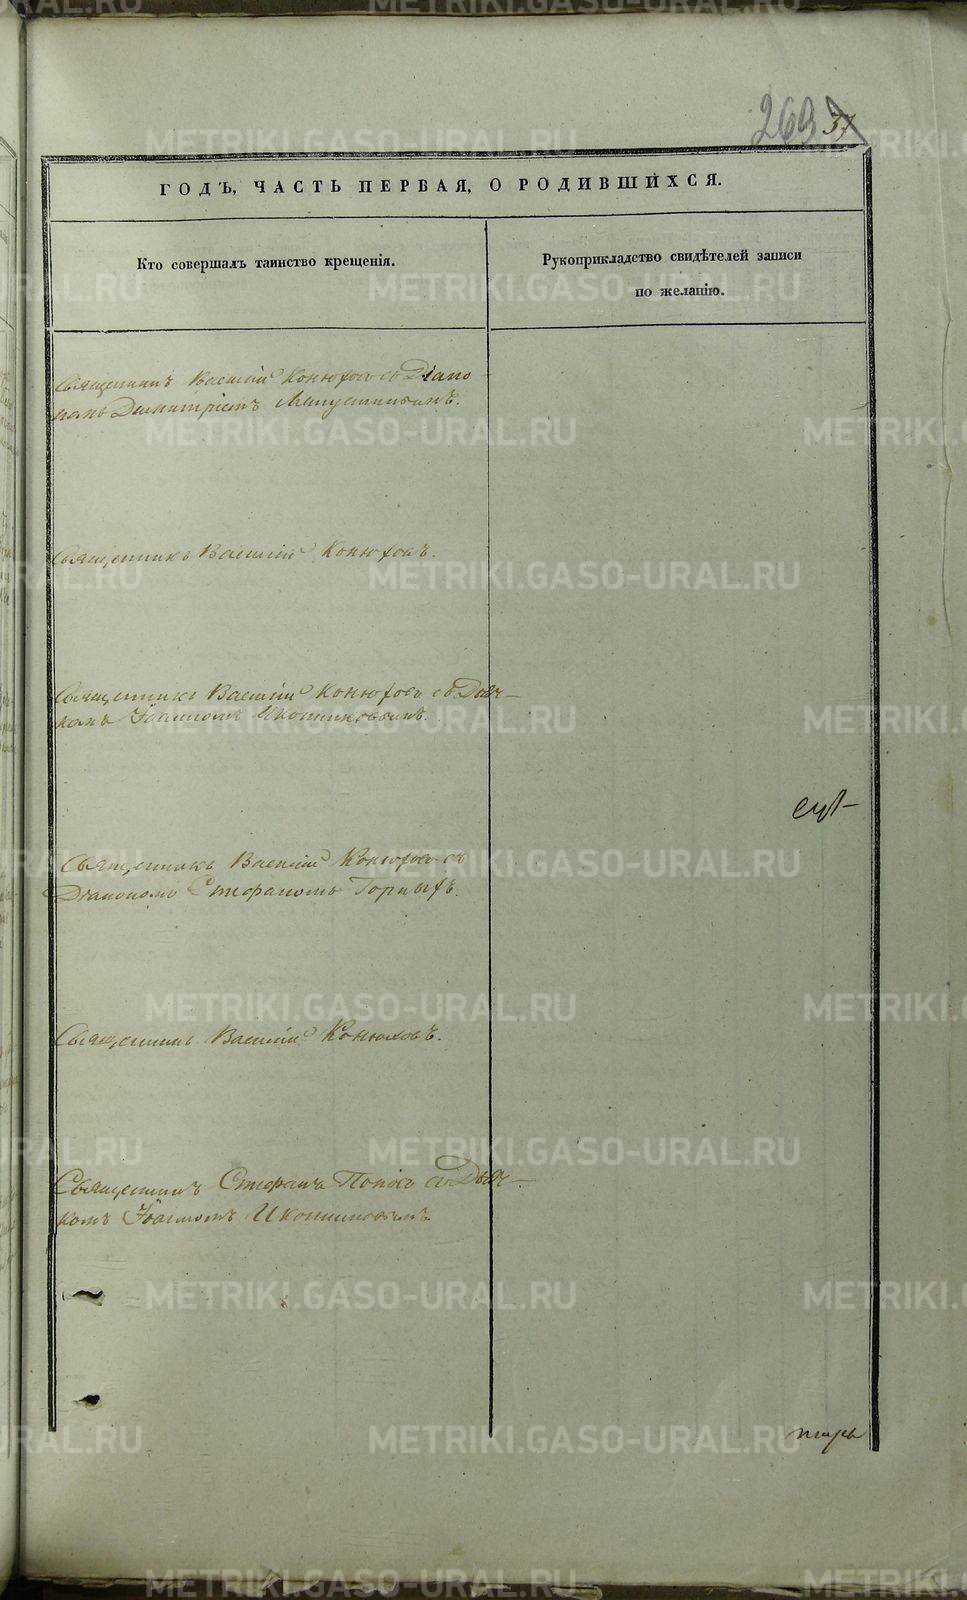 269 37
ГОДЪ, ЧАСТЬ ПЕРВАЯ, О РОДИВШИХСЯ.
Кто совершалъ таинство крещенія.
Рукоприкладство свидѣтелей записи
по желанію.
Священникъ Василій Конюховъ съ Діако
номъ Димитріемъ
Священникъ Василій Конюховъ.
Священникъ Василій Конюховъ съ Дьяч-
комъ Іоанномъ Иконниковымъ.
Священникъ Василій Конюховъ съ
Діакономъ Стефаномъ Горныхъ.
Священникъ Василій Конюховъ.
Священникъ Стефанъ Поповъ съ Дьяч-
комъ Іоанномъ Иконниковымъ.
METRIKI.GASO-URAL.RU